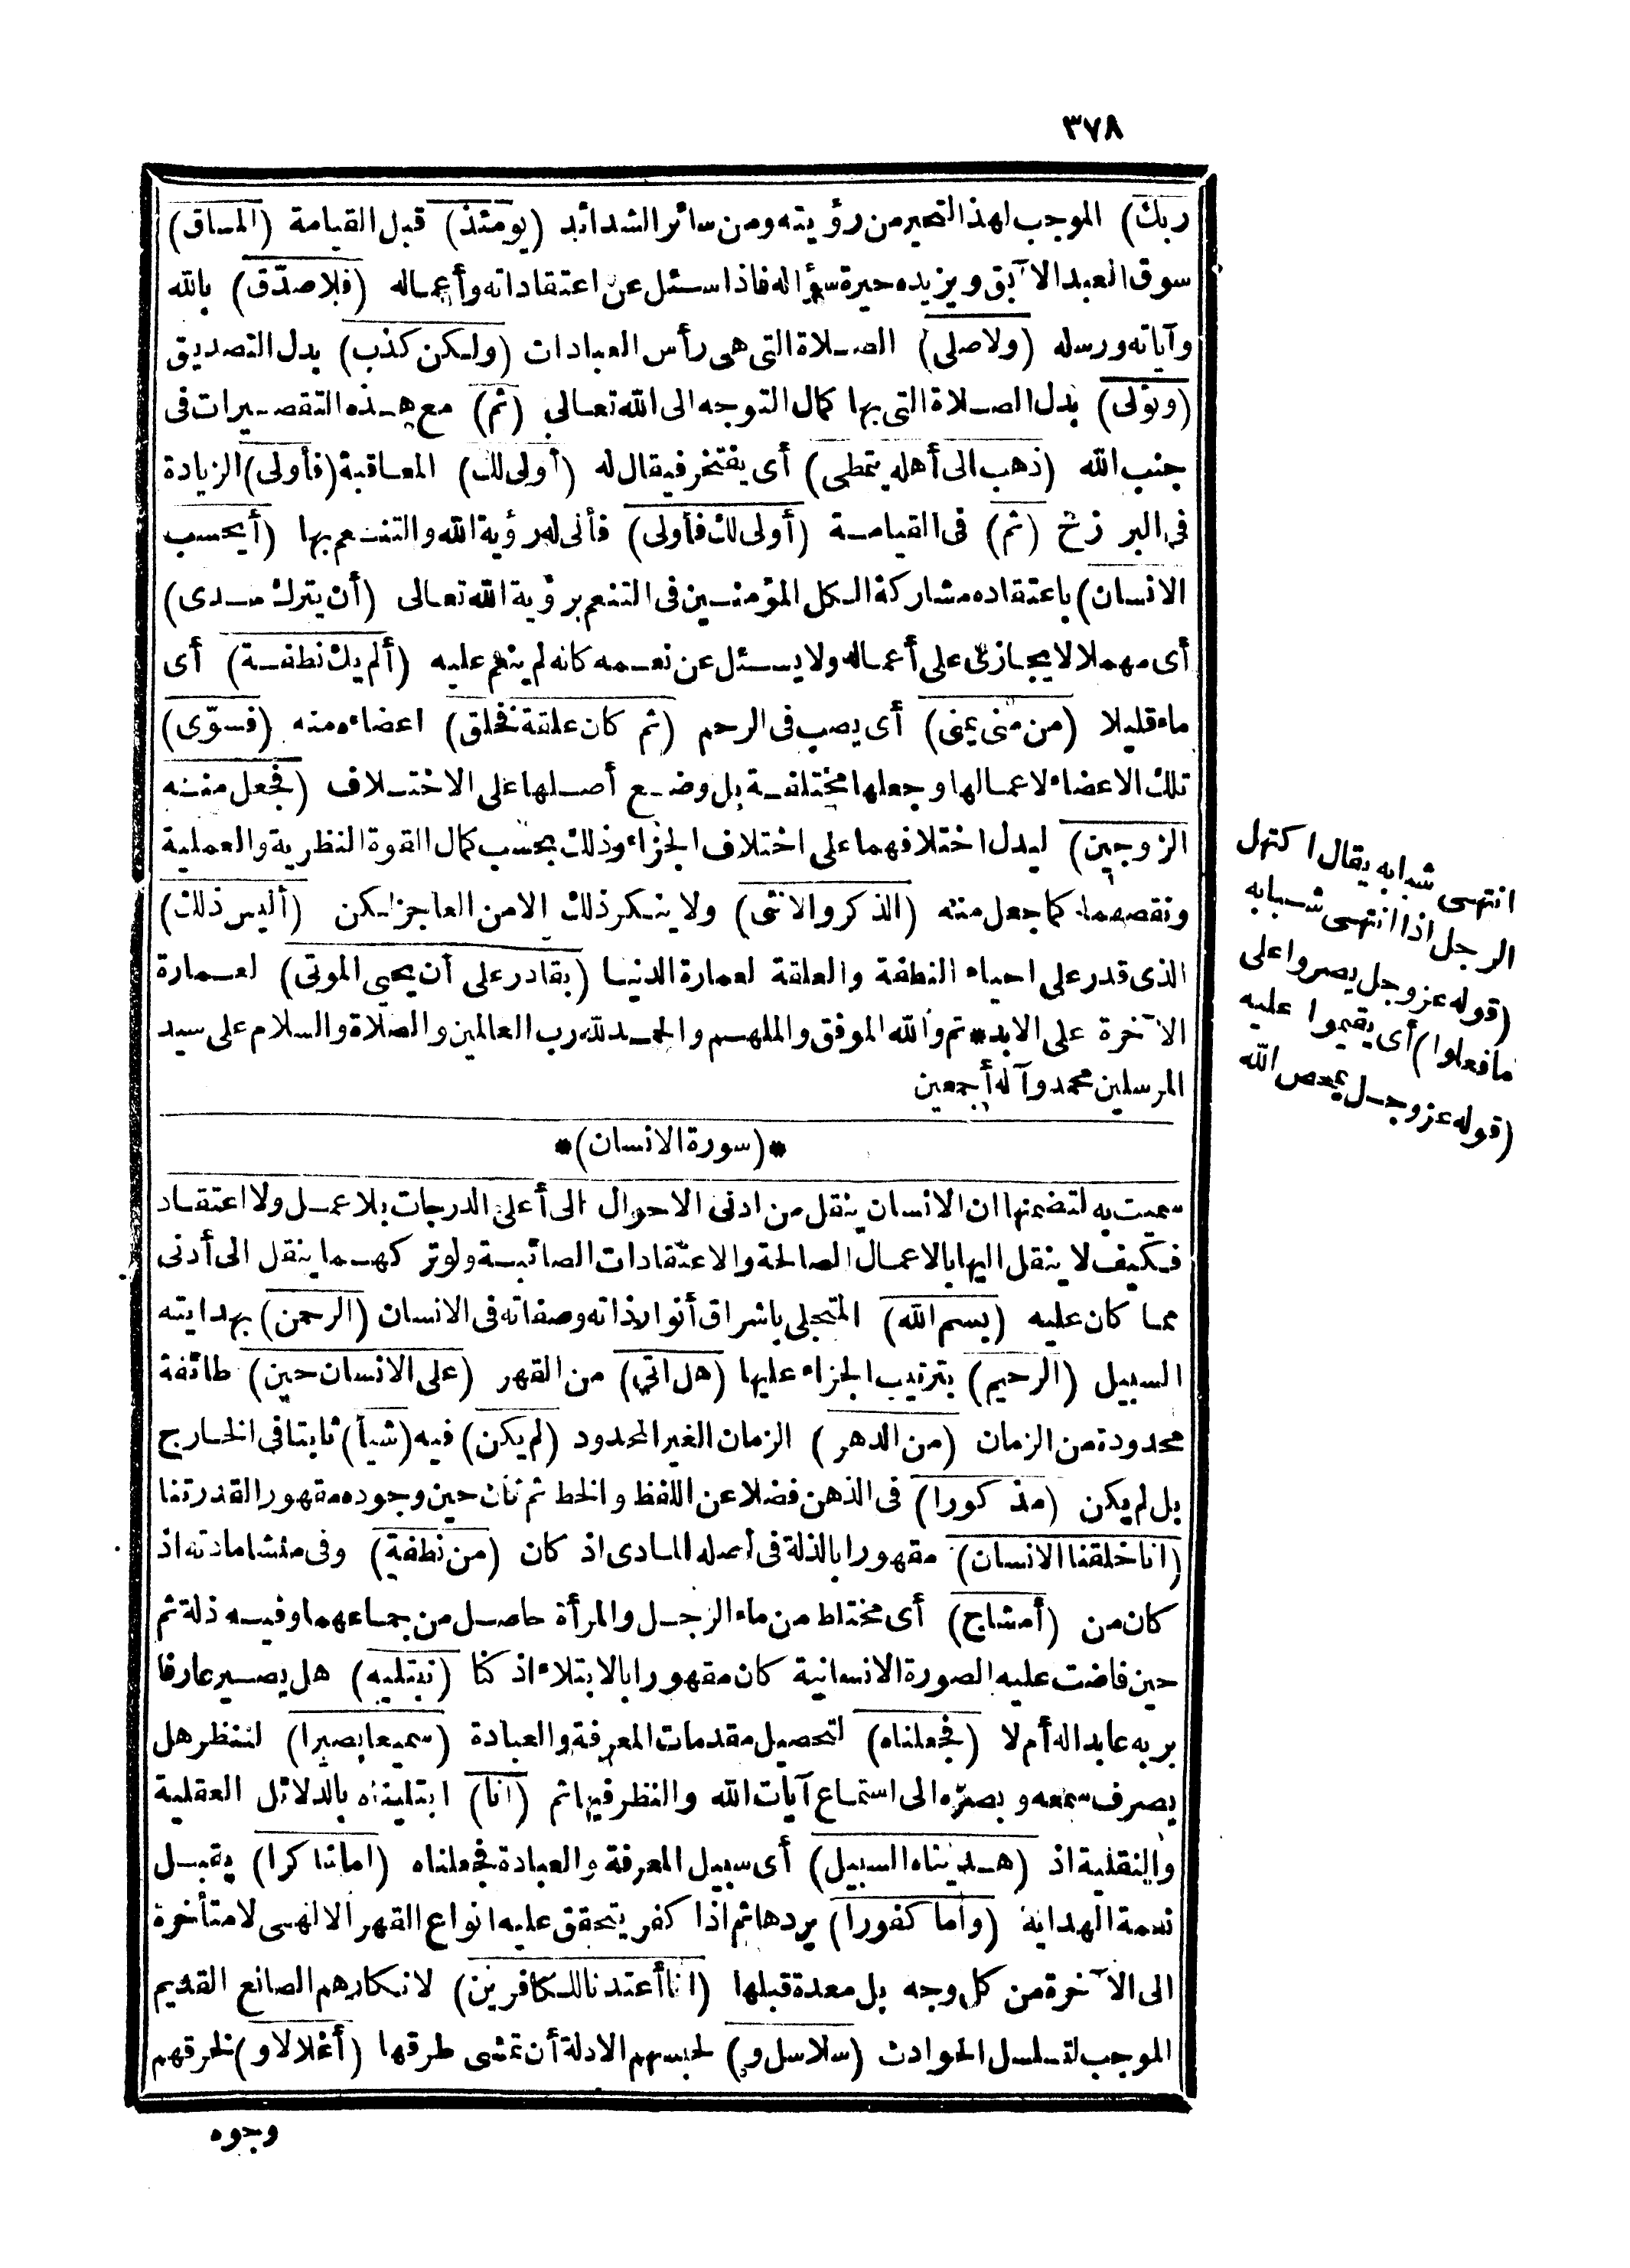 ٣٧٨
ربك) الموجب لهذا التحير من رؤيته ومن سائر الشدائد (يومئذ) قبل القيامة (المساق)
سوق العبد الآبق ويزيده حيرة سؤاله فاذا سئل عن اعتقاداته وأعماله (فلا صدّق) بالله
وآياته ورسله (ولا صلى) الصلاة التى هى رأس العبادات (ولكن كذب) بدل التصديق
(وتولى) بدل الصلاة التى بها كمال التوجه الى الله تعالى (ثم) مع هذه التقصيرات فى
جنب الله (ذهب الى أهله يتمطى) أى يفتخر فيقال له (أولى لك) المعاقبة (فأولى) الزيادة
فى البرزخ (ثم) فى القيامة (أولى لك فأولى) فأنى له رؤية الله والتنعم بها (أيحسب
الانسان) باعتقاده مشاركة الكل المؤمنين فى التنعم برؤية الله تعالى (أن يترك سدى)
أى مهملا لا يجازى على أعماله ولا يسئل عن نعمه كانه لم ينعم عليه (ألم يك نطفة) أى
ماء قليلا (من منى يمنى) أى يصب فى الرحم (ثم كان علقة فخلق) اعضاءه منه (فسوّى)
تلك الاعضاء لاعمالها وجعلها مختلفة بل وضع أصلها على الاختلاف (فجعل منه
الزوجين) ليدل اختلافهما على اختلاف الجزاء وذلك بحسب كمال القوة النظرية والعملية
ونقصهما كما جعل منه (الذكر والانثى) ولا ينكر ذلك الا من العاجز لكن (أليس ذلك)
الذى قدر على احياء النطفة والعلقة لعمارة الدنيا (بقادر على أن يحيى الموتى) لعمارة
الآخرة على الابد * تم والله الموفق والملهم والحمد لله رب العالمين والصلاة والسلام على سيد
المرسلين محمد وآله أجمعين
*(سورة الانسان)*
سميت به لتضمنها ان الانسان ينقل من ادنى الاحوال الى أعلى الدرجات بلا عمل ولا اعتقاد
فكيف لا ينقل اليها بالاعمال الصالحة والاعتقادات الصائبة ولو تركهما ينقل الى أدنى
مما كان عليه (بسم الله) المتجلى باشراق أنوار ذاته وصفاته فى الانسان (الرحمن) بهدايته
السبيل (الرحيم) بترتيب الجزاء عليها (هل اتى) من القهر (على الانسان حين) طائفة
محدودة من الزمان (من الدهر) الزمان الغير المحدود (لم يكن) فيه (شيأ) ثابتا فى الخارج
بل لم يكن (مذكورا) فى الذهن فضلا عن اللفظ والخط ثم كان حين وجوده مقهورا لقدرتنا
(انا خلقنا الانسان) مقهورا بالذلة فى أصله المادى اذ كان (من نطفة) وفى منشا مادته اذ
كان من (أمشاج) أى مختلط من ماء الرجل والمرأة حاصل من جماعهما وفيه ذلة ثم
حين فاضت عليه الصورة الانسانية كان مقهورا بالابتلاء اذ كنا (نبتليه) هل يصير عارفا
بربه عابدا له أم لا (فجعلناه) لتحصيل مقدمات المعرفة والعبادة (سميعا بصيرا) لننظر هل
يصرف سمعه وبصره الى استماع آيات الله والنظر فيها ثم (انا) ابتليناه بالدلائل العقلية
والنقلية اذ (هديناه السبيل) أى سبيل المعرفة والعبادة فجعلناه (اما شاكرا) يقبل
نعمة الهداية (واما كفورا) يردها ثم اذا كفر يتحقق عليه انواع القهر الالهى لا متأخرة
الى الآخرة من كل وجه بل معدة قبلها (انا أعتدنا للكافرين) لانكارهم الصانع القديم
الموجب لتسلسل الحوادث (سلاسل و) لحبسهم الادلة أن تمشى طرقها (أغلالا و) لخرقهم
وجوه
انتهى شبابه يقال اكتهل
الرجل اذا انتهى شبابه
(قوله عز وجل يصروا على
ما فعلوا) أى يقيموا عليه
(قوله عز وجل يمحص الله